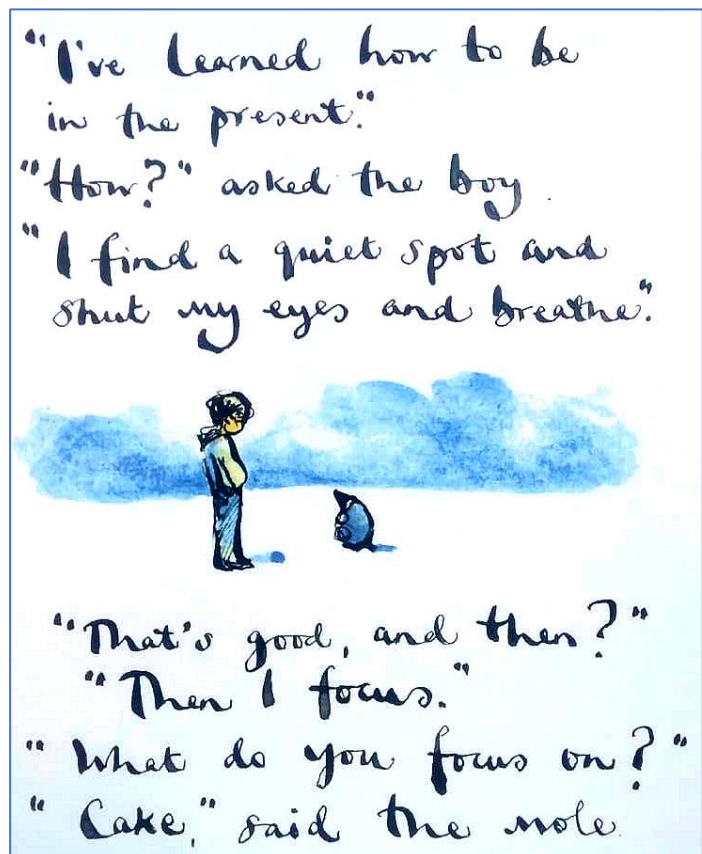 "I've learned how to be
in the present."
"How?" asked the boy.
"I find a quiet spot and
shut my eyes and breathe."
"That's good, and then?"
"Then I focus."
"What do you focus on?"
"Cake," said the mole.